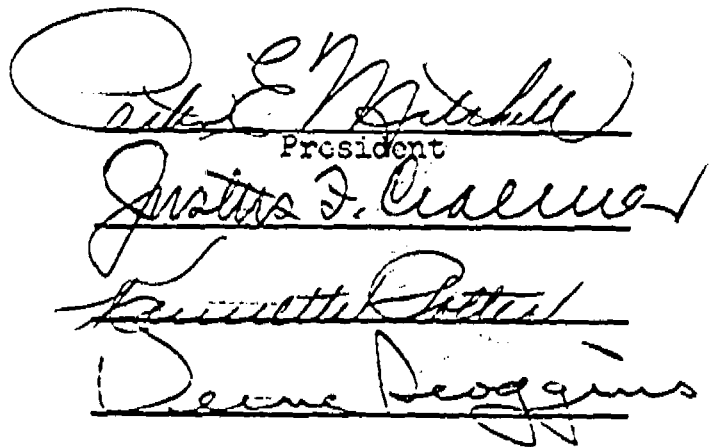 E. Mitchell
President
Justus F. Craemer
Kenneth Potter
Scoggins